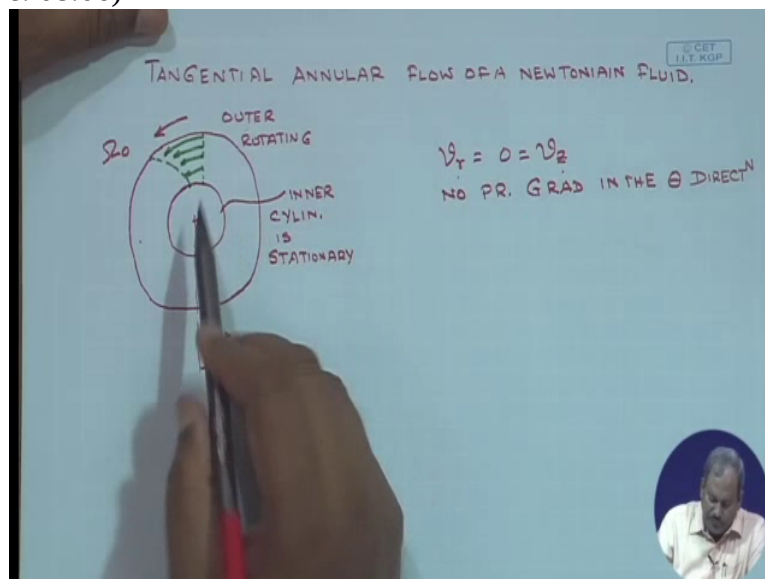 © CET
I.I.T. KGP
TANGENTIAL ANNULAR FLOW OF A NEWTONIAIN FLUID.
OUTER
ROTATING
Ωo
INNER
CYLIN.
IS
STATIONARY
υr = 0 = υz
NO PR. GRAD IN THE θ DIRECTN